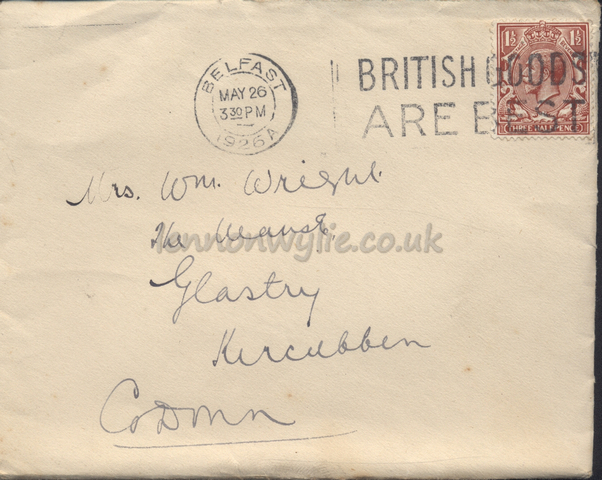 BELFAST
MAY 26
3 30 PM
1926 A
BRITISH GOODS
ARE BEST
1½ 1½
THREE HALFPENCE
Mrs. Wm. Wright.
The Manse,
lennonwylie.co.uk
Glastry
Kircubben
Co Down